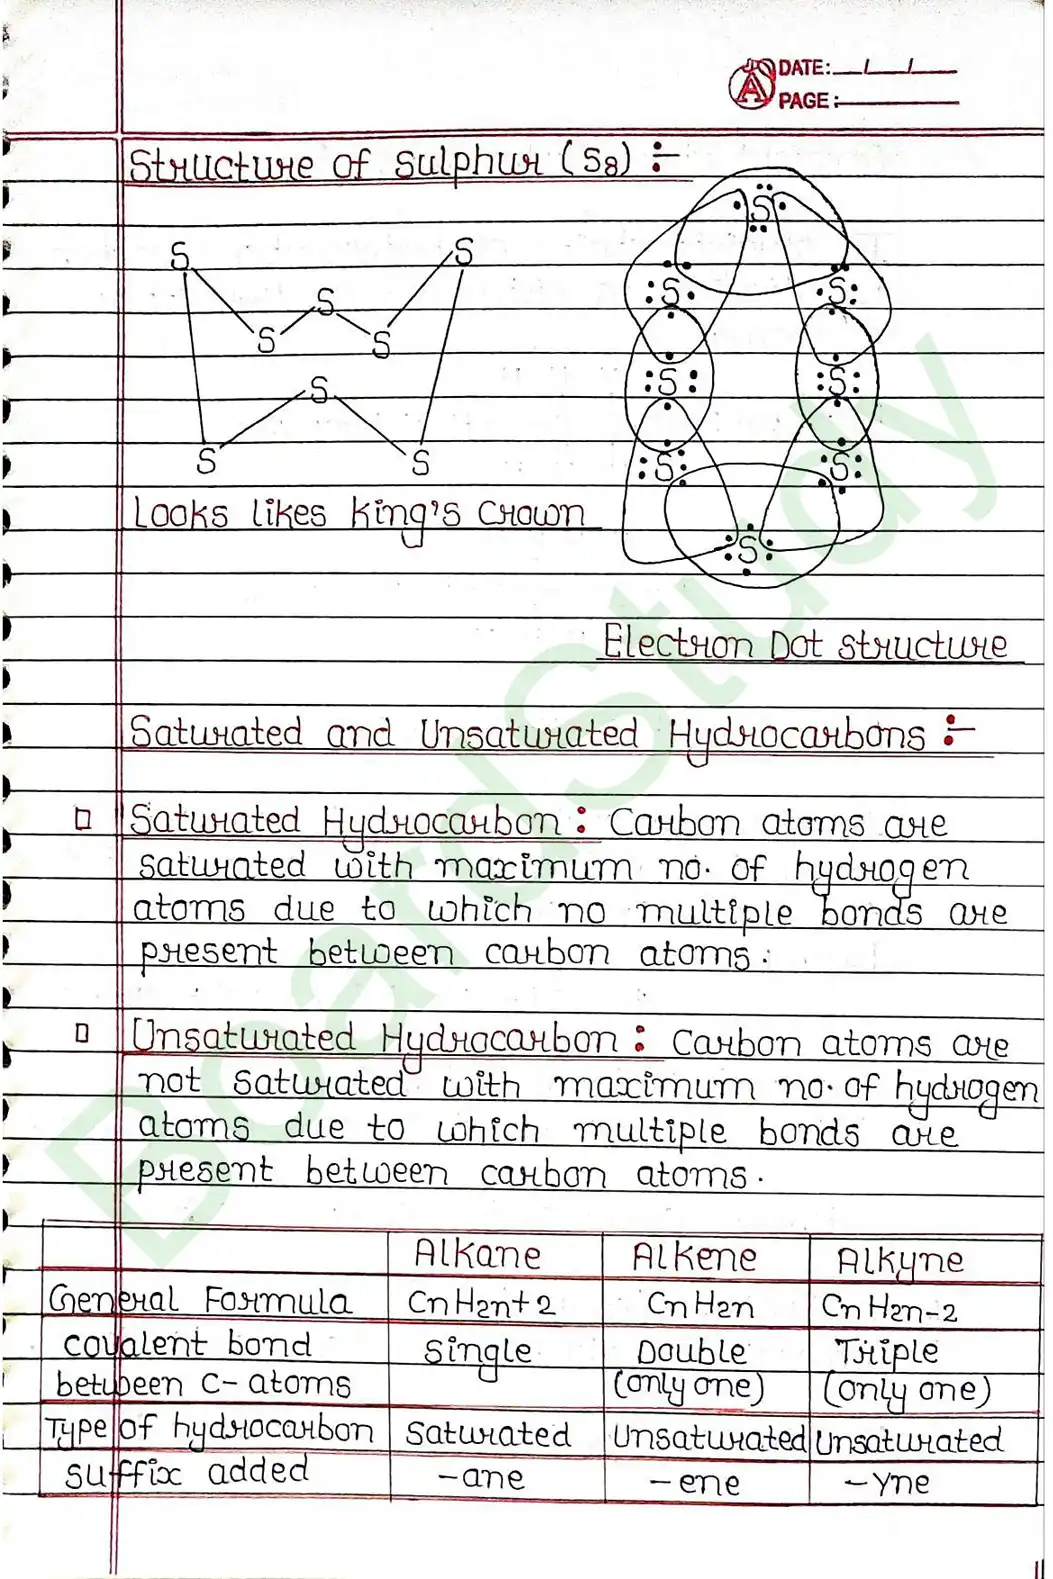 DATE: __/__/__
PAGE:
Structure of Sulphur (S8) :-
S S
S
S S
S
S S
S
S S
S S
S S
S
Looks likes King's Crown
Electron Dot structure
Saturated and Unsaturated Hydrocarbons :-
Saturated Hydrocarbon : Carbon atoms are
saturated with maximum no. of hydrogen
atoms due to which no multiple bonds are
present between carbon atoms.
Unsaturated Hydrocarbon : Carbon atoms are
not saturated with maximum no. of hydrogen
atoms due to which multiple bonds are
present between carbon atoms.
Alkane Alkene Alkyne
General Formula CnH2n+2 CnH2n CnH2n-2
covalent bond Single Double Triple
between C-atoms (only one) (only one)
Type of hydrocarbon Saturated Unsaturated Unsaturated
suffix added -ane -ene -yne
BoardStudy